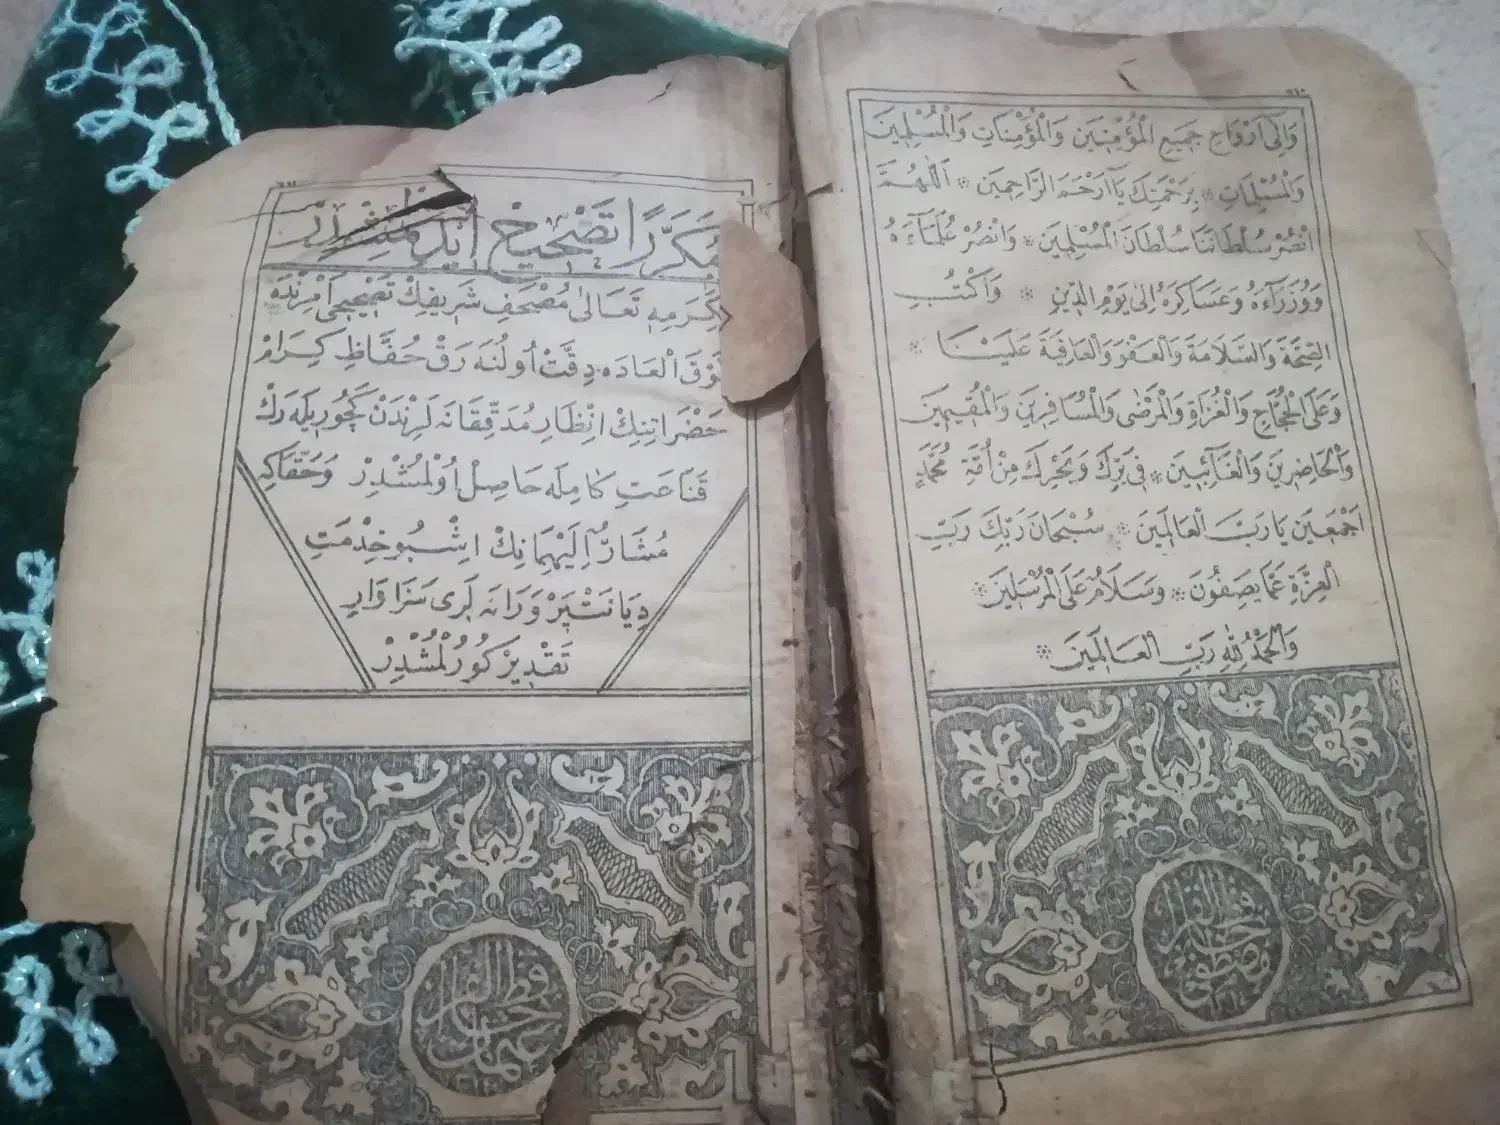 ٦١٠
وَاِلَى اَرْوَاحِ جَمِيعِ الْمُؤْمِنِينَ وَالْمُؤْمِنَاتِ وَالْمُسْلِمِينَ
وَالْمُسْلِمَاتِ ۞ بِرَحْمَتِكَ يَآ اَرْحَمَ الرَّاحِمِينَ ۞ اَللّٰهُمَّ
انْصُرْ سُلْطَانَنَا سُلْطَانَ الْمُسْلِمِينَ ۞ وَانْصُرْ عُلَمَآءَهُ
وَوُزَرَآءَهُ وَعَسَاكِرَهُ اِلٰى يَوْمِ الدِّينِ ۞ وَاكْتُبِ
الصِّحَّةَ وَالسَّلَامَةَ وَالْعَفْوَ وَالْعَافِيَةَ عَلَيْنَا ۞
وَعَلَى الْحُجَّاجِ وَالْغُزَاةِ وَالْمَرْضٰى وَالْمُسَافِرِينَ وَالْمُقِيمِينَ
وَالْحَاضِرِينَ وَالْغَآئِبِينَ ۞ فِى بَرِّكَ وَبَحْرِكَ مِنْ اُمَّةِ مُحَمَّدٍ
اَجْمَعِينَ يَا رَبَّ الْعَالَمِينَ ۞ سُبْحَانَ رَبِّكَ رَبِّ
الْعِزَّةِ عَمَّا يَصِفُونَ ۞ وَسَلَامٌ عَلَى الْمُرْسَلِينَ ۞
وَالْحَمْدُ لِلّٰهِ رَبِّ الْعَالَمِينَ ۞
مُكَرَّرًا تَصْحِيحْ اِيدِلْمِشْدِرْ
كَرَمِهِ تَعَالٰى مُصْحَفِ شَرِيفِكْ تَصْحِيحِى اَمْرِنْدَه
فَوْقَ الْعَادَه دِقَّتْ اُولُنَه رَقْ حُفَّاظِ كِرَامْ
حَضَرَاتِنِكْ اَنْظَارِ مُدَقِّقَانَه لَرِنْدَنْ كَچُورِيلَه رَكْ
قَنَاعَتِ كَامِلَه حَاصِلْ اُولْمُشْدِرْ وَحَقَّاكِه
مُشَارٌ اِلَيْهِمَانِكْ اِشْبُو خِدْمَتِ
دِيَانَتْپَرْوَرَانَه لَرِى سَزَاوَارِ
تَقْدِيرْ كُورُلْمُشْدِرْ